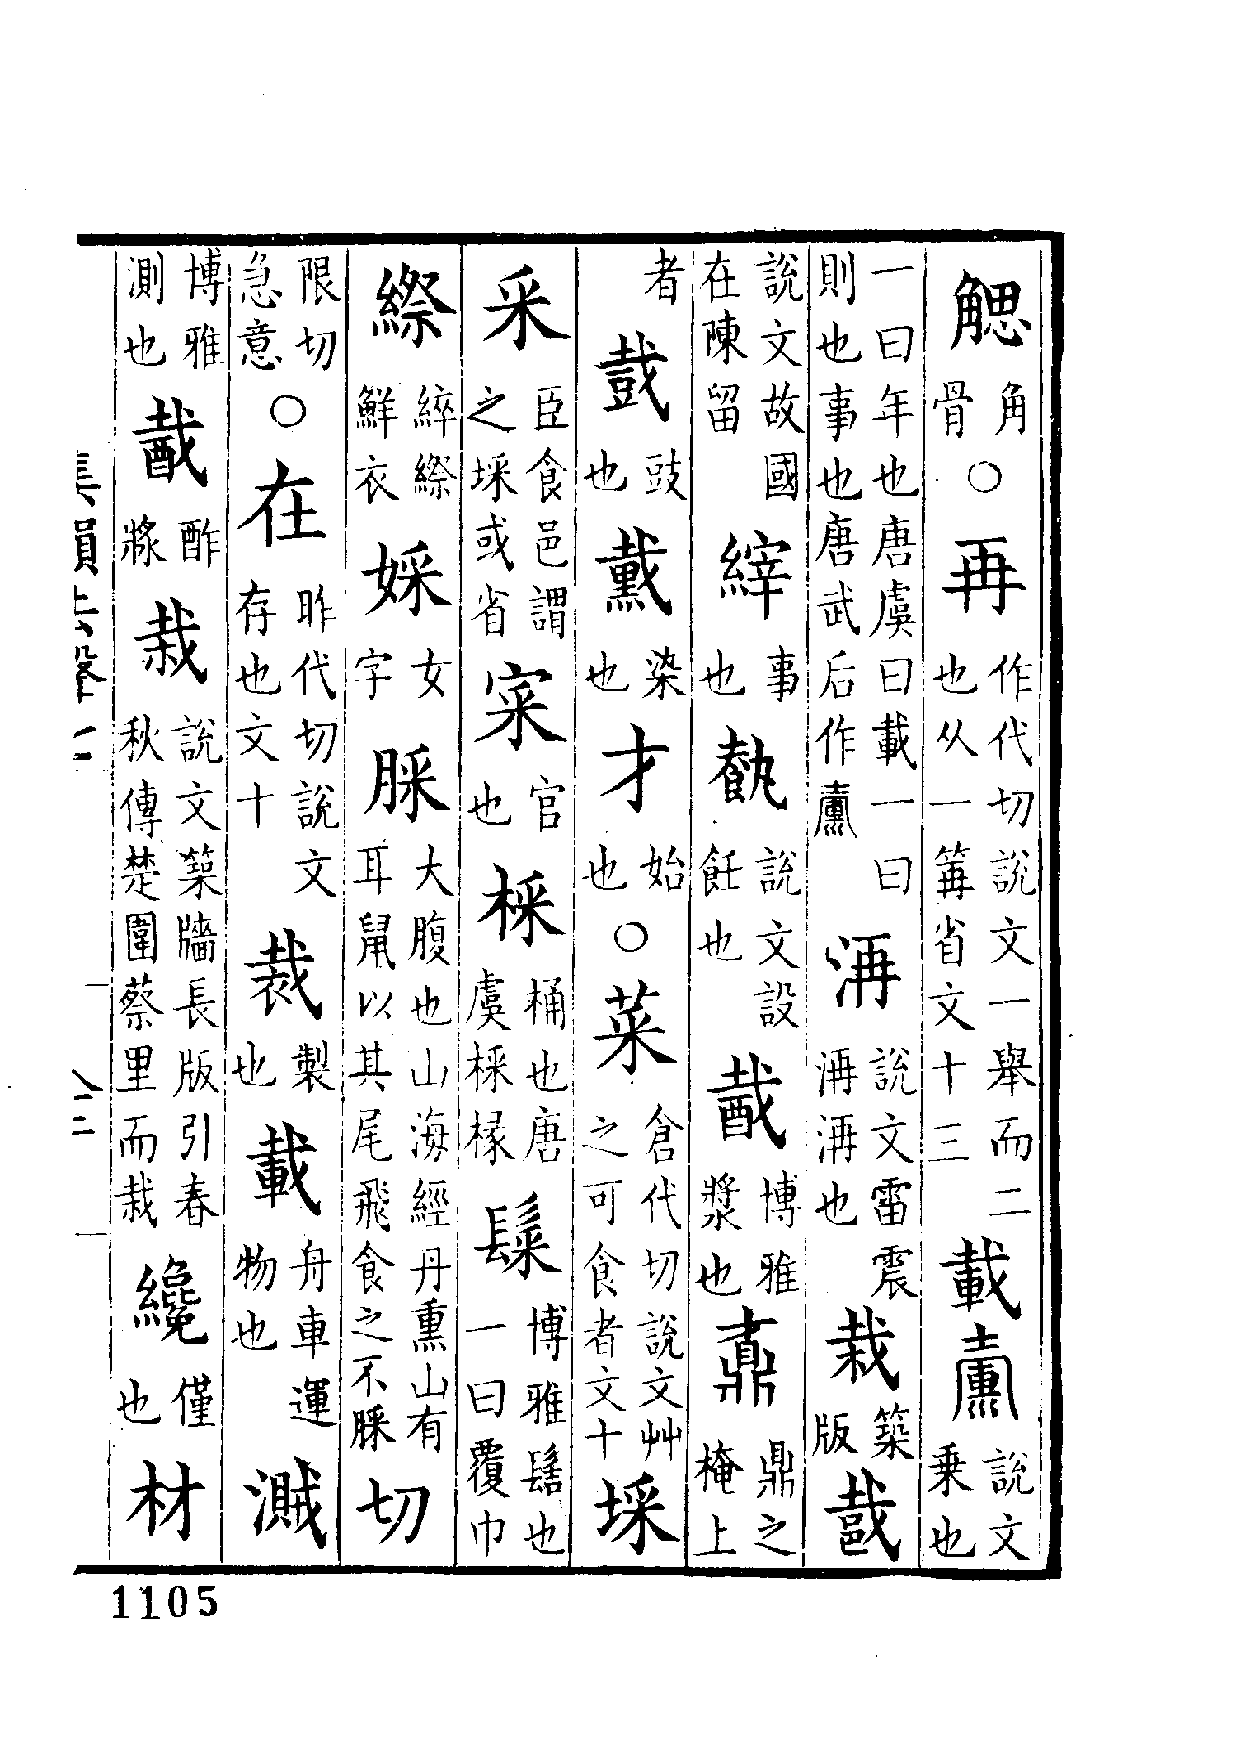 䚡角骨○再作代切說文一舉而二也从一冓省文十三載𡔽說文乘也
一曰年也唐虞曰載一曰則也事也唐武后作𡔽洅說文雷震洅洅也栽築版㦲
說文故國在陳留縡事也𩚳說文設飪也酨博雅漿也鼒鼎之掩上
者䵧豉也䵧染也才始也○菜倉代切說文艸之可食者文十埰
采臣食邑謂之埰或省寀官也棌桶也唐虞棌椽䰂博雅髻也一曰覆巾
縩綷縩鮮衣婇女字脎大腹也山海經丹熏山有耳鼠以其尾飛食之不脎切
限切急意○在昨代切說文存也文十裁製也載舟車運物也溅
博雅測也酨酢漿栽說文築牆長版引春秋傳楚圍蔡里而栽纔僅也材
集韻去聲七
1105